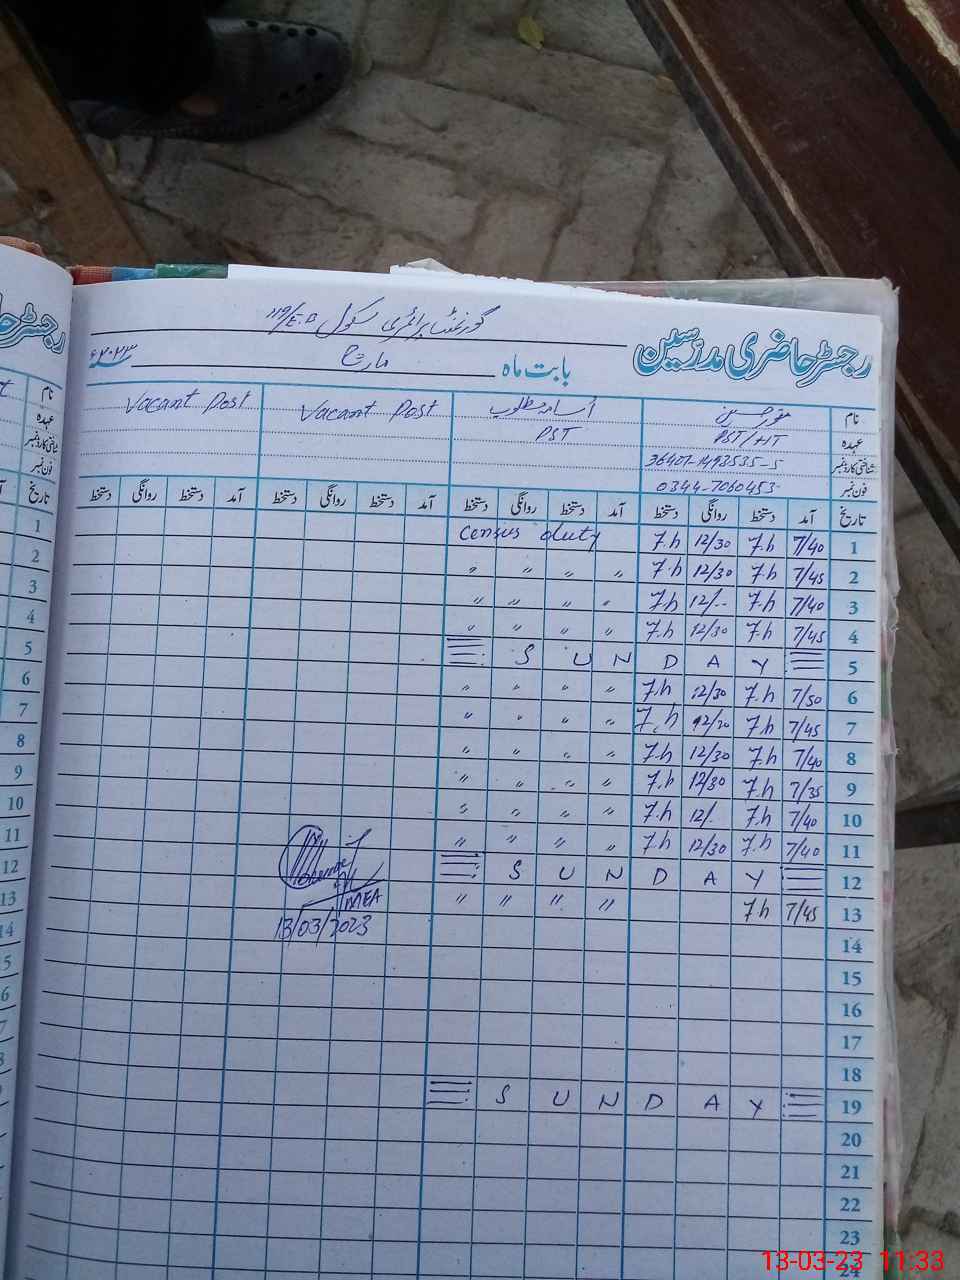 گورنمنٹ پرائمری سکول 119/E.B
رجسٹر حاضری مدرسین
بابت ماہ مارچ ۲۰۲۳ء
نام Vacant Post Vacant Post
عہدہ PST/HT PST
شناختی کارڈ نمبر 36401-1493535-5
فون نمبر 0344-7060453
تاریخ آمد دستخط روانگی دستخط آمد دستخط روانگی دستخط آمد دستخط روانگی دستخط آمد دستخط روانگی دستخط
1 7/40 7.h 12/30 7.h Census duty
2 7/45 7.h 12/30 7.h " " " "
3 7/40 7.h 12/.. 7.h " " " "
4 7/45 7.h 12/30 7.h " " " "
5 SUNDAY
6 7/50 7.h 12/30 7.h " " " "
7 7/45 7.h 12/30 7.h " " " "
8 7/40 7.h 12/30 7.h " " " "
9 7/35 7.h 12/30 7.h " " " "
10 7/40 7.h 12/. 7.h " " " "
11 7/40 7.h 12/30 7.h " " " "
12 SUNDAY
13 7/45 7h " " " "
MEA
13/03/2023
14
15
16
17
18
19 SUNDAY
20
21
22
23
24
13-03-23 11:33